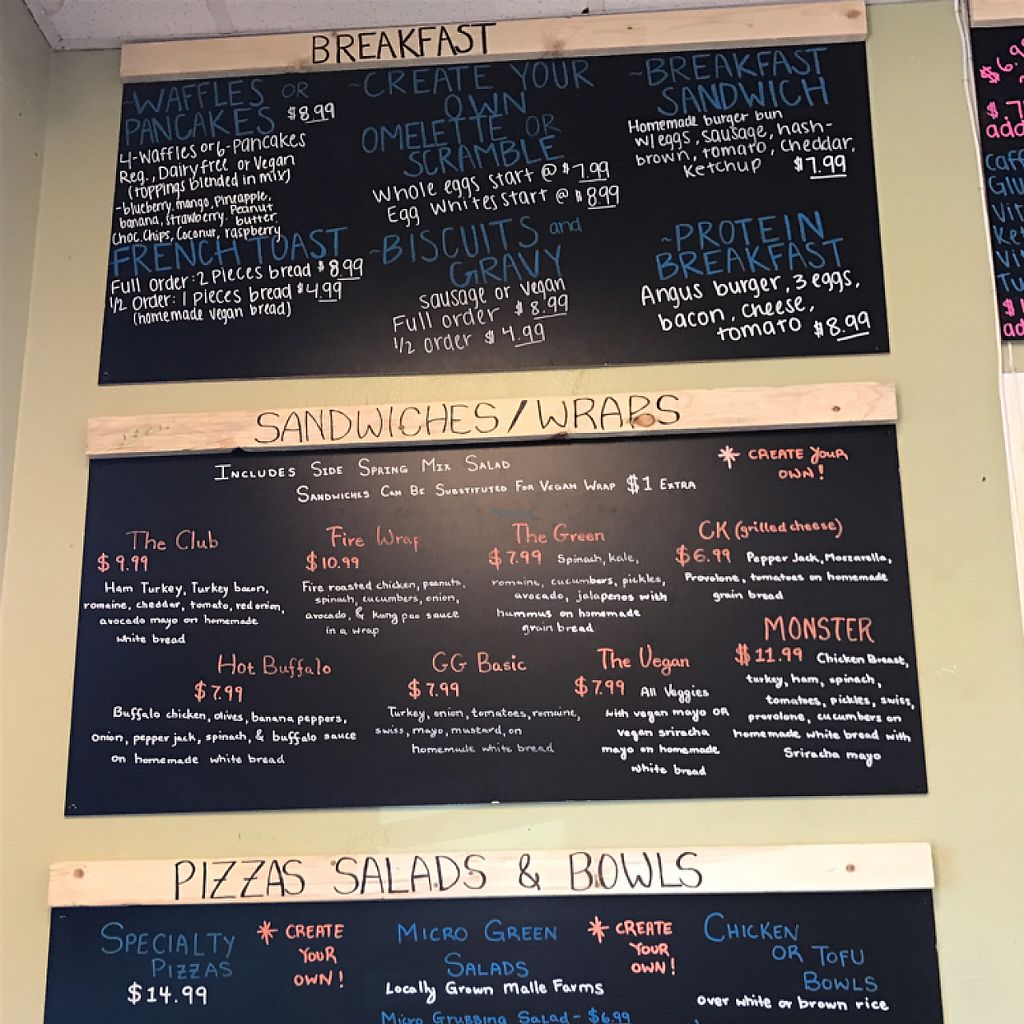 BREAKFAST
~WAFFLES OR
PANCAKES $8.99
4-Waffles or 6-Pancakes
Reg., Dairy free or Vegan
(toppings blended in mix)
-blueberry, mango, pineapple,
banana, strawberry, Peanut
butter,
Choc.Chips, Coconut, raspberry
FRENCH TOAST
Full order: 2 Pieces bread $8.99
1/2 Order: 1 Pieces bread $4.99
(homemade vegan bread)
~CREATE YOUR
OWN
OMELETTE OR
SCRAMBLE
Whole eggs start @ $7.99
Egg Whites start @ $8.99
~BISCUITS and
GRAVY
Sausage or Vegan
Full order $8.99
1/2 order $4.99
~BREAKFAST
SANDWICH
Homemade burger bun
w/eggs, sausage, hash-
brown, tomato, cheddar,
Ketchup $7.99
~PROTEIN
BREAKFAST
Angus burger, 3 eggs,
bacon, cheese,
tomato $8.99
SANDWICHES/WRAPS
INCLUDES SIDE SPRING MIX SALAD
SANDWICHES CAN BE SUBSTITUTED FOR VEGAN WRAP $1 EXTRA
* CREATE YOUR
OWN!
The Club
$9.99
Ham Turkey, Turkey bacon,
romaine, cheddar, tomato, red onion,
avocado mayo on homemade
white bread
Fire Wrap
$10.99
Fire roasted chicken, peanuts,
spinach, cucumbers, onion,
avocado, & kung pao sauce
in a wrap
The Green
$7.99 Spinach, kale,
romaine, cucumbers, pickles,
avocado, jalapenos with
hummus on homemade
grain bread
CK (grilled cheese)
$6.99 Pepper Jack, Mozzarella,
Provolone, tomatoes on homemade
grain bread
Hot Buffalo
$7.99
Buffalo chicken, olives, banana peppers,
onion, pepper jack, spinach, & buffalo sauce
on homemade white bread
GG Basic
$7.99
Turkey, onion, tomatoes, romaine,
swiss, mayo, mustard, on
homemade white bread
The Vegan
$7.99 All Veggies
with vegan mayo OR
vegan sriracha
mayo on homemade
white bread
MONSTER
$11.99 Chicken Breast,
turkey, ham, spinach,
tomatoes, pickles, swiss,
provolone, cucumbers on
homemade white bread with
Sriracha mayo
PIZZAS SALADS & BOWLS
SPECIALTY
PIZZAS
$14.99
* CREATE
YOUR
OWN!
MICRO GREEN
SALADS
Locally Grown Malle Farms
Micro Grubbing Salad - $6.99
* CREATE
YOUR
OWN!
CHICKEN
OR TOFU
BOWLS
over white or brown rice